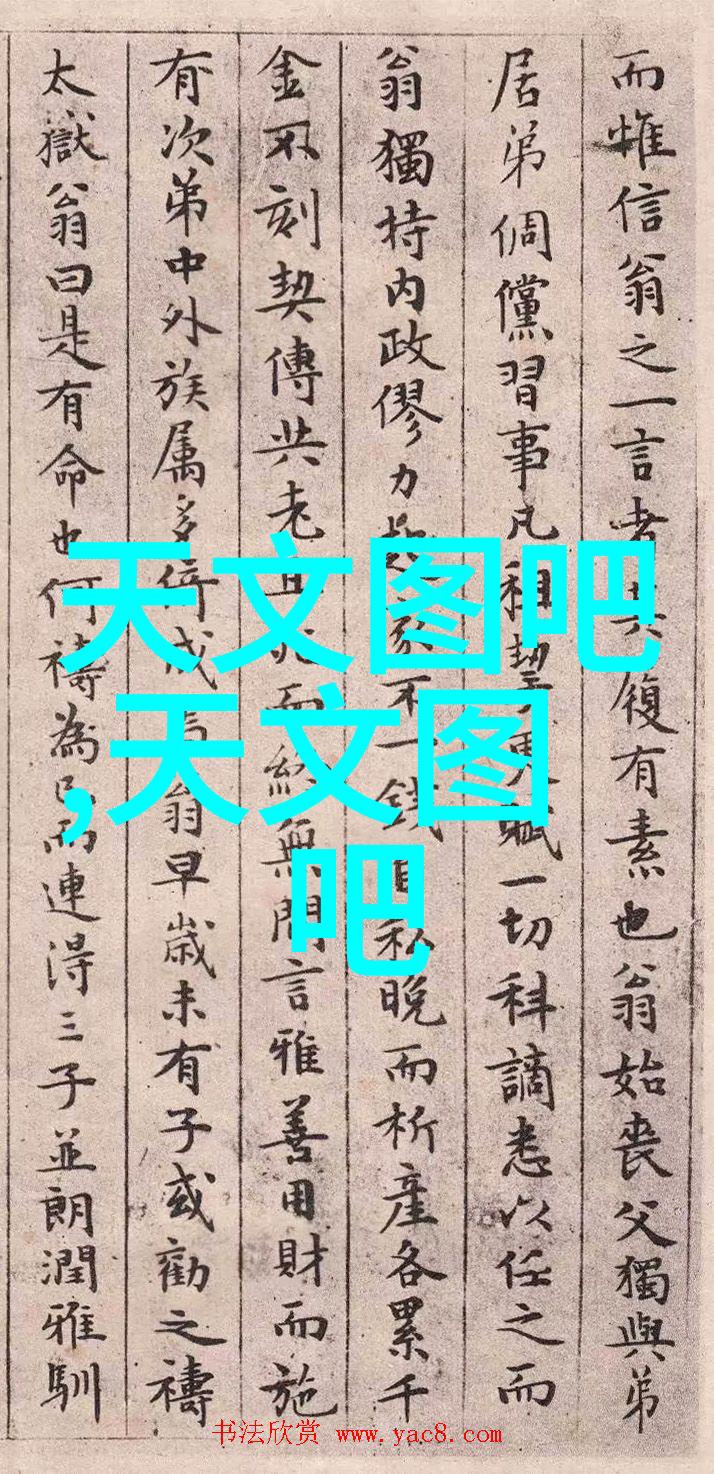 而惟信翁之一言者其履有素也翁始喪父獨與弟
居弟倜儻習事凡租更賦一切科謫悉以任之而
翁獨持内政僇力起家不一錢自私晚而析產各累千
金不刻契傳共老且死而終無間言雅善用財而施
有次弟中外族属多待成焉翁早歲未有子或勸之禱
太嶽翁曰是有命也何禱為已而連得三子並朗潤雅馴
天文图吧
,天文图
吧
书法欣赏 www.yac8.com